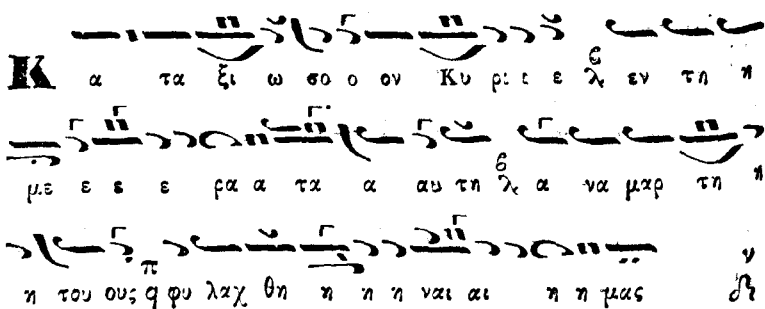 Κ α τα ξι ω σο ο ον Κυ ρι ε ε λ εν τη η
με ε ε ε ρα α τα α αυ τη λ α να μαρ τη η
η του ους q φυ λαχ θη η η η ναι αι η η μας